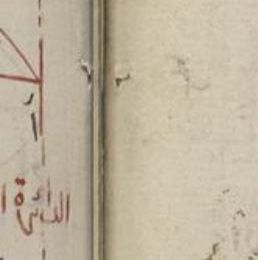 أ
الدائرة ا